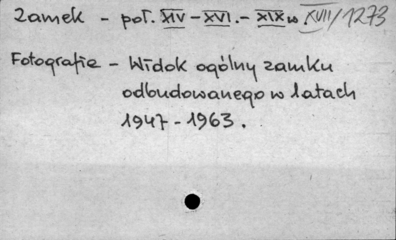 Zamek - poł. XIV - XVI. - XIX w. XVII/1273
Fotografie - Widok ogólny zamku
odbudowanego w latach
1947 - 1963.